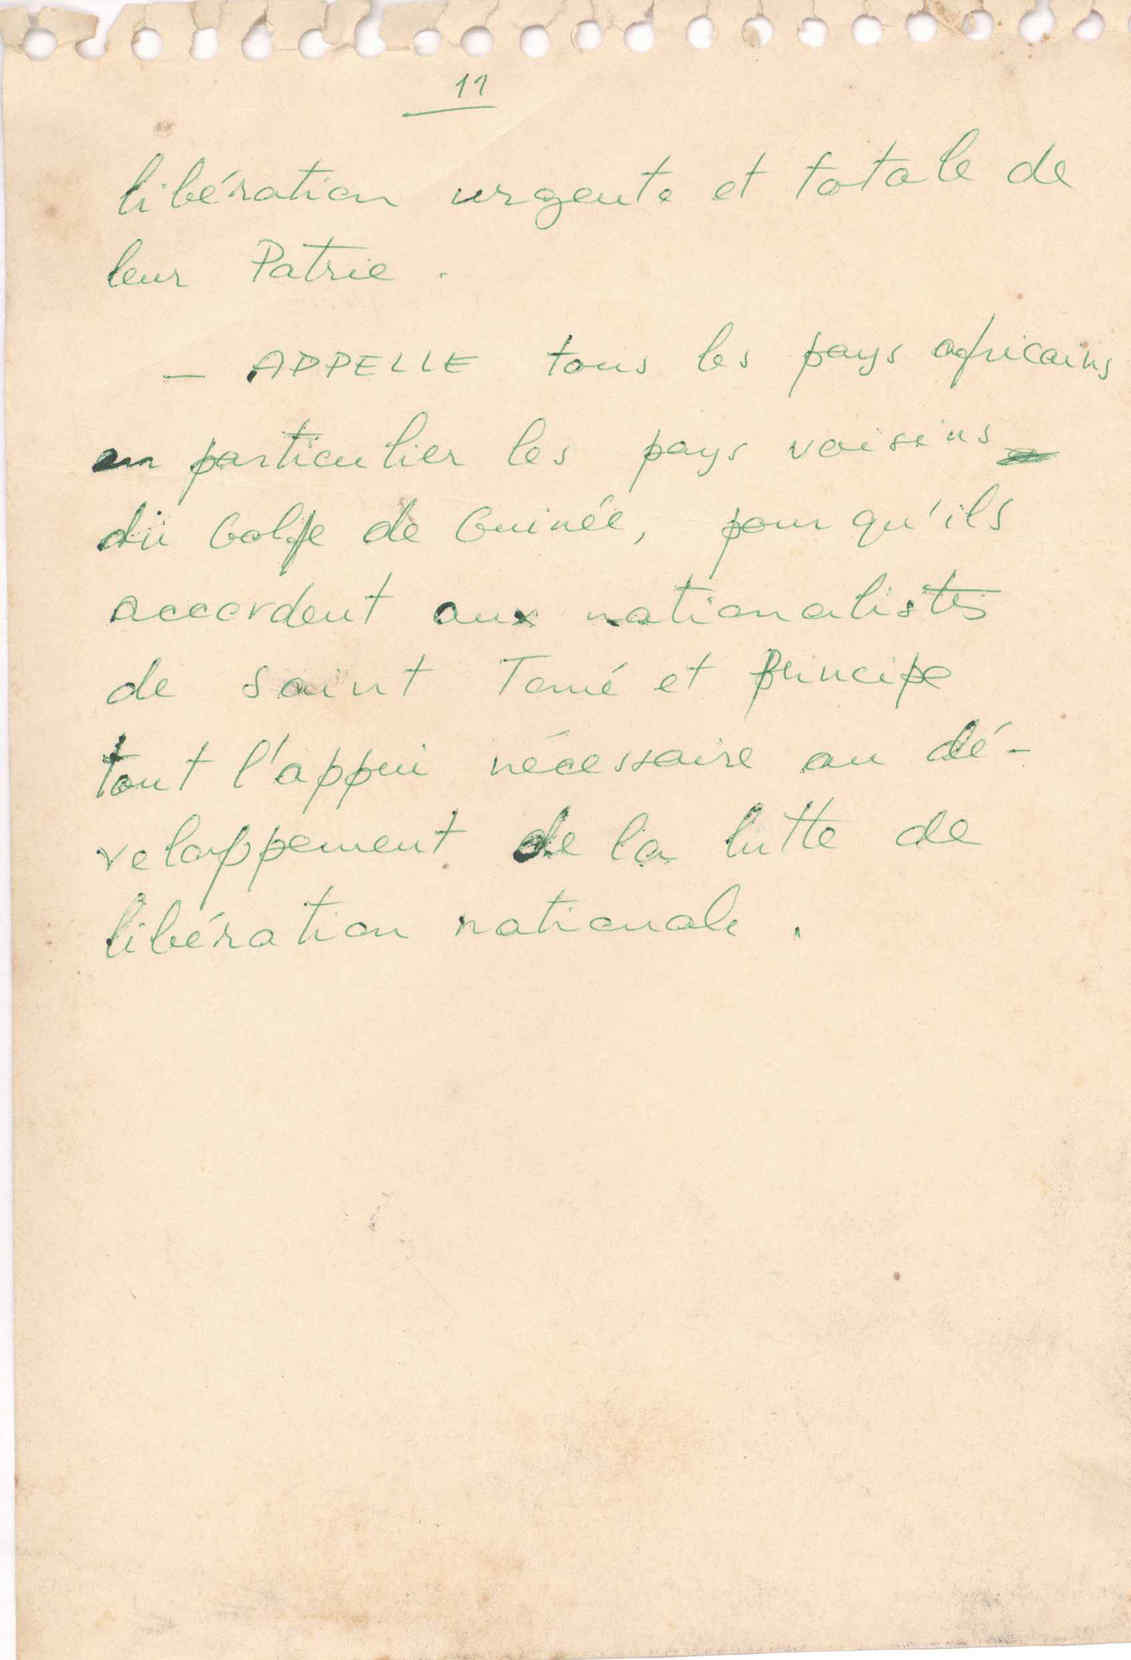 11
libération urgente et totale de
leur Patrie.
- APPELLE tous les pays africains
en particulier les pays voisins
du Golfe de Guinée, pour qu'ils
accordent aux nationalistes
de Saint Tomé et Principe
tout l'appui nécessaire au dé-
veloppement de la lutte de
libération nationale.